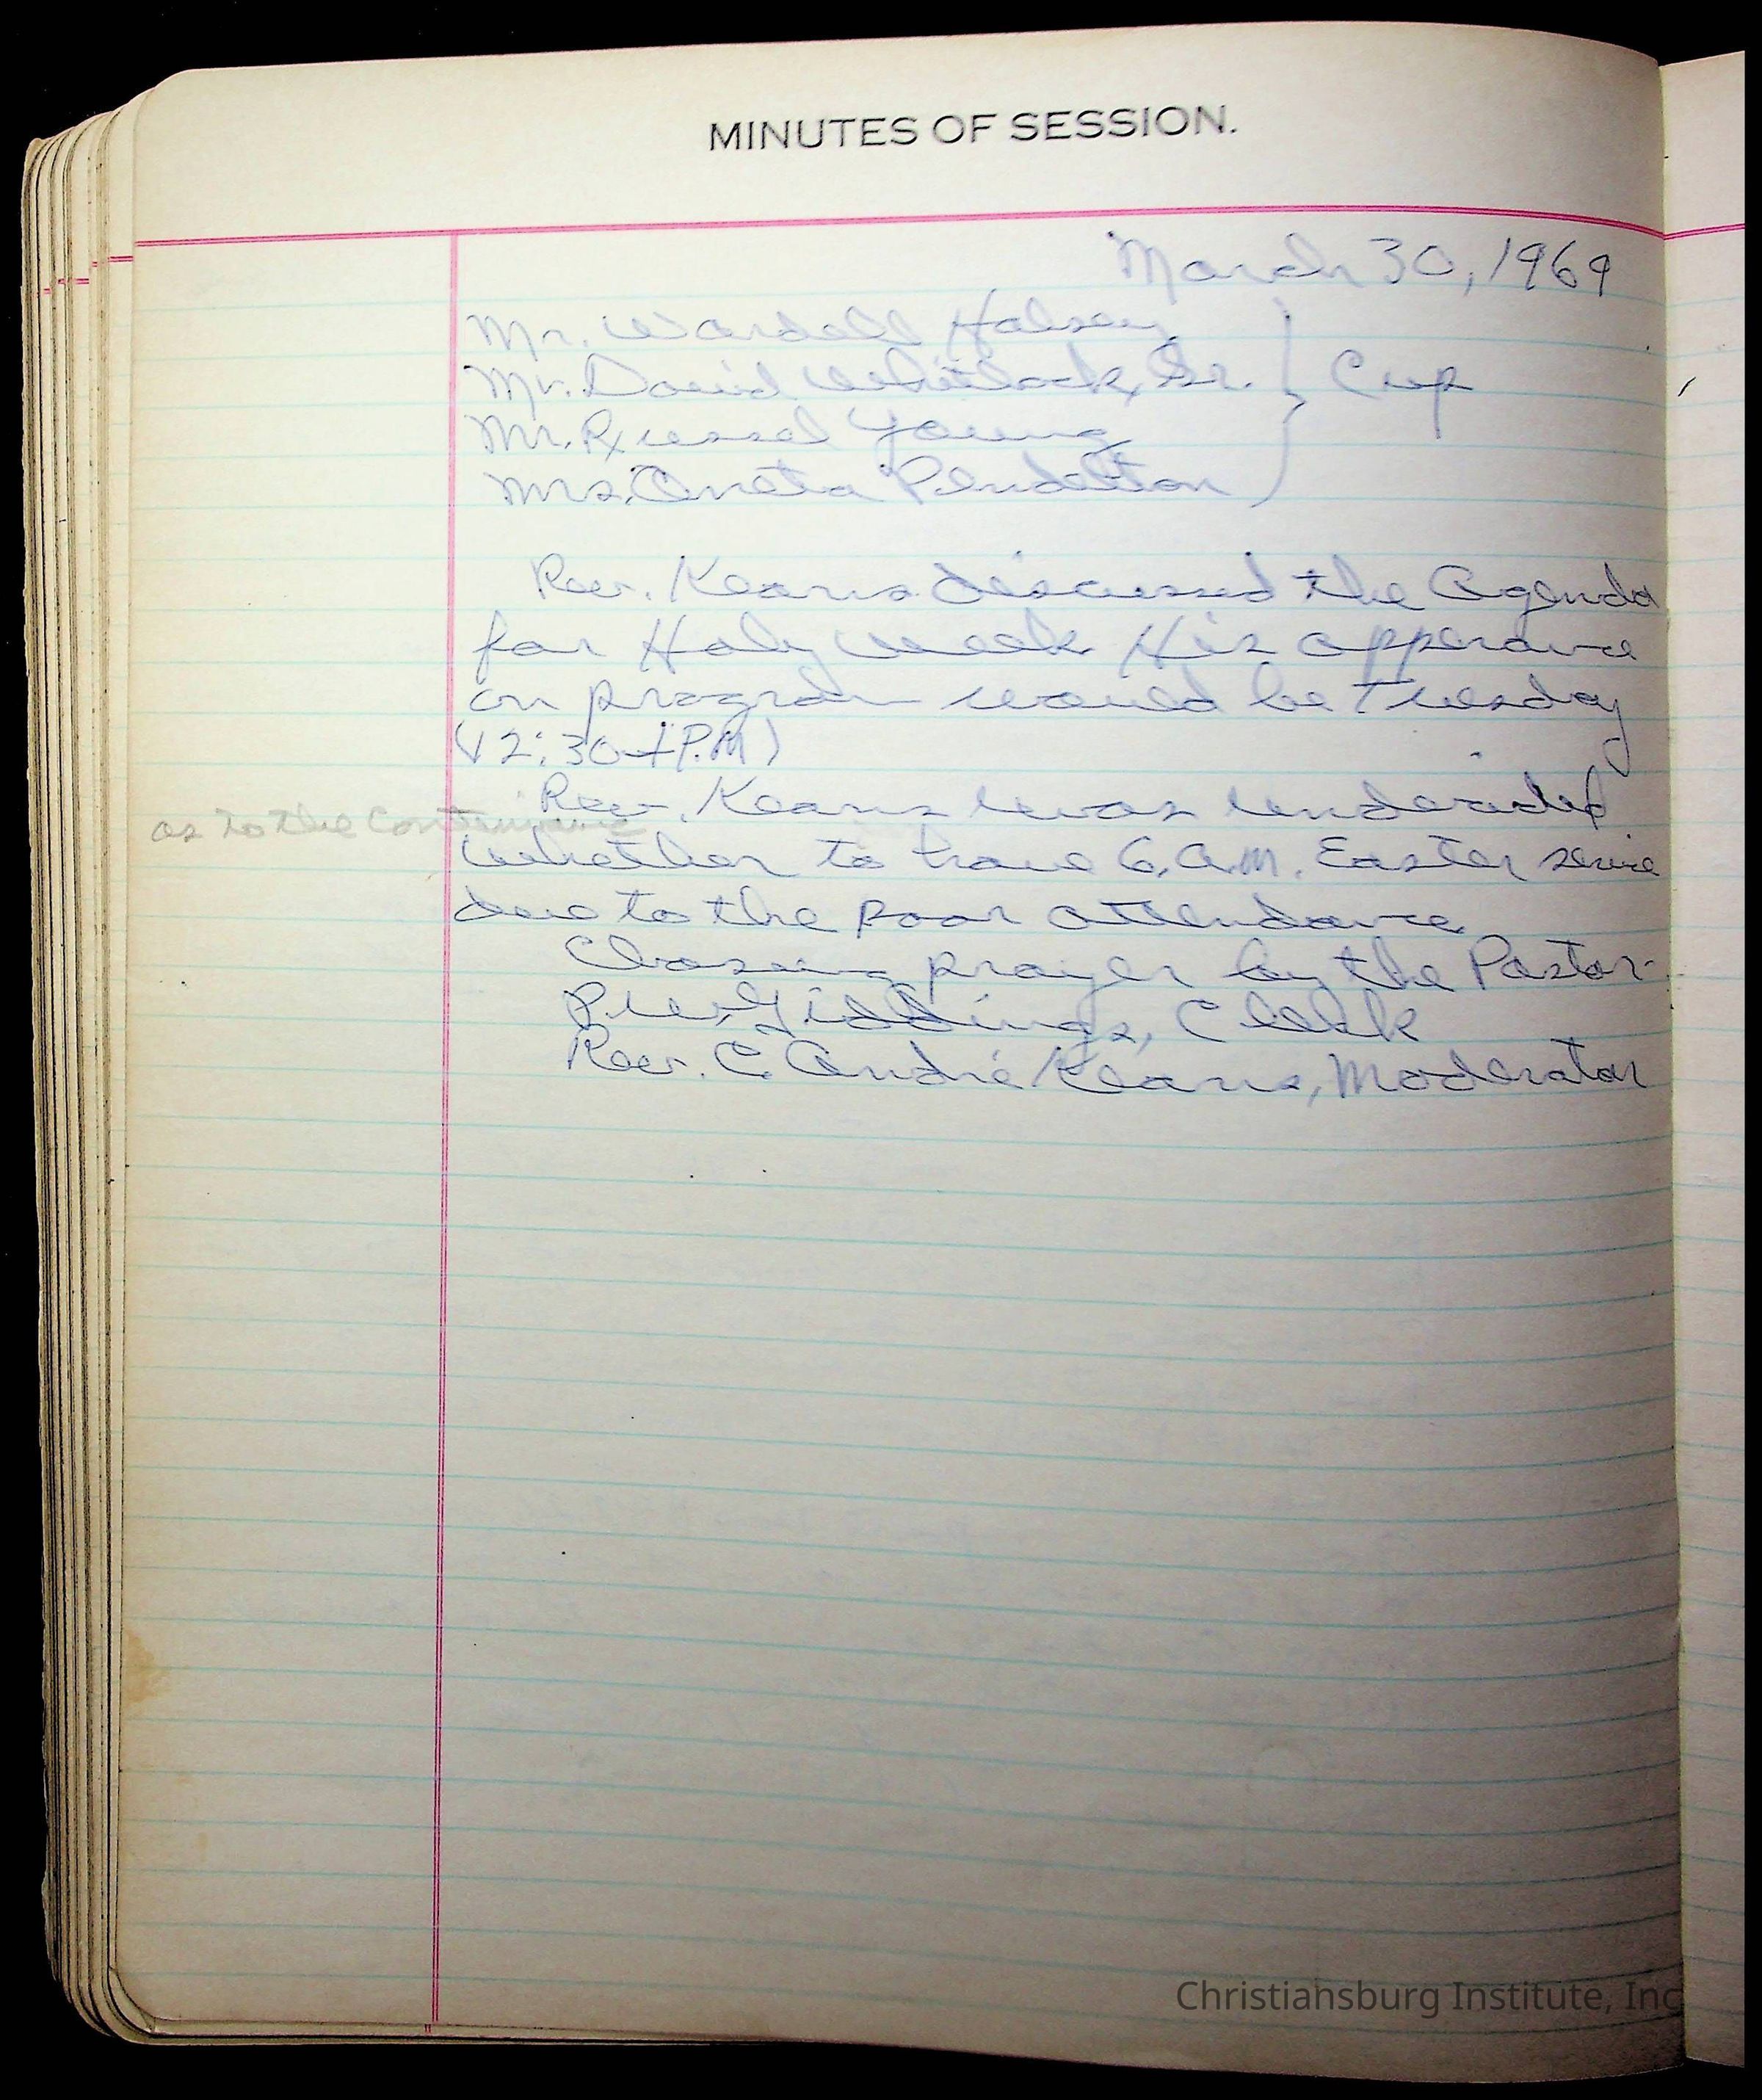 MINUTES OF SESSION.
March 30, 1969
Mr. Wardell Halsey
Mr. David Whitlock, Sr. } Cup
Mr. Russel Young
Mrs. Oneta Pendelton
Rev. Keans discussed the Agenda
for Holy Week His apperance
on program would be Tuesday
(12:30-1P.M)
Rev. Keans was undecided
as to the Continuing
whether to have 6, A.M. Easter service
due to the poor attendance
Closing prayer by the Pastor
P.W. Giddings, Clerk
Rev. C. André Keans, Moderator
Christiansburg Institute, Inc